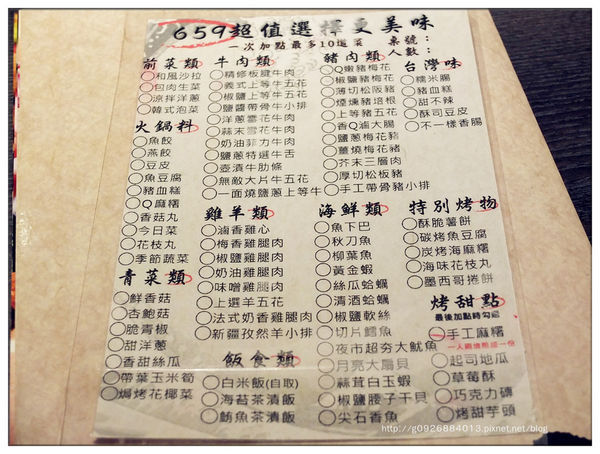 659超值選擇更美味
一次加點最多10道菜
桌號:
人數:
前菜類
和風沙拉
包肉生菜
涼拌洋蔥
韓式泡菜
火鍋料
魚餃
燕餃
豆皮
魚豆腐
豬血糕
Q麻糬
香菇丸
今日菜
花枝丸
季節蔬菜
青菜類
鮮香菇
杏鮑菇
脆青椒
甜洋蔥
香甜絲瓜
帶葉玉米筍
焗烤花椰菜
牛肉類
精修板腱牛肉
義式上等牛五花
椒鹽上等牛五花
鹽醬帶骨牛小排
洋蔥雪花牛肉
蒜末雪花牛肉
奶油菲力牛肉
鹽蔥特選牛舌
壺漬牛肋條
無敵大片牛五花
一面燒鹽蔥上等牛
雞羊類
滷香雞心
梅香雞腿肉
椒鹽雞腿肉
奶油雞腿肉
味噌雞腿肉
上選羊五花
法式奶香雞腿肉
新疆孜然羊小排
飯食類
白米飯(自取)
海苔茶漬飯
鮪魚茶漬飯
豬肉類
Q嫩豬梅花
椒鹽豬梅花
薄切松阪豬
煙燻豬培根
上等豬五花
香Q滷大腸
鹽蔥梅花豬
薑燒梅花豬
芥末三層肉
厚切松板豬
手工帶骨豬小排
海鮮類
魚下巴
秋刀魚
柳葉魚
黃金蝦
絲瓜蛤蠣
清酒蛤蠣
椒鹽軟絲
切片鱈魚
夜市超夯大魷魚
月亮大扇貝
蒜茸白玉蝦
椒鹽腰子干貝
尖石香魚
台灣味
糯米腸
豬血糕
甜不辣
酥司豆皮
不一樣香腸
特別烤物
酥脆薯餅
碳烤魚豆腐
炭烤海麻糬
海味花枝丸
墨西哥捲餅
烤甜點
最後加點時勾選
手工麻糬
一人圈選限送一份
起司地瓜
草莓酥
巧克力磚
烤甜芋頭
http://g0926884013.pixnet.net/blog